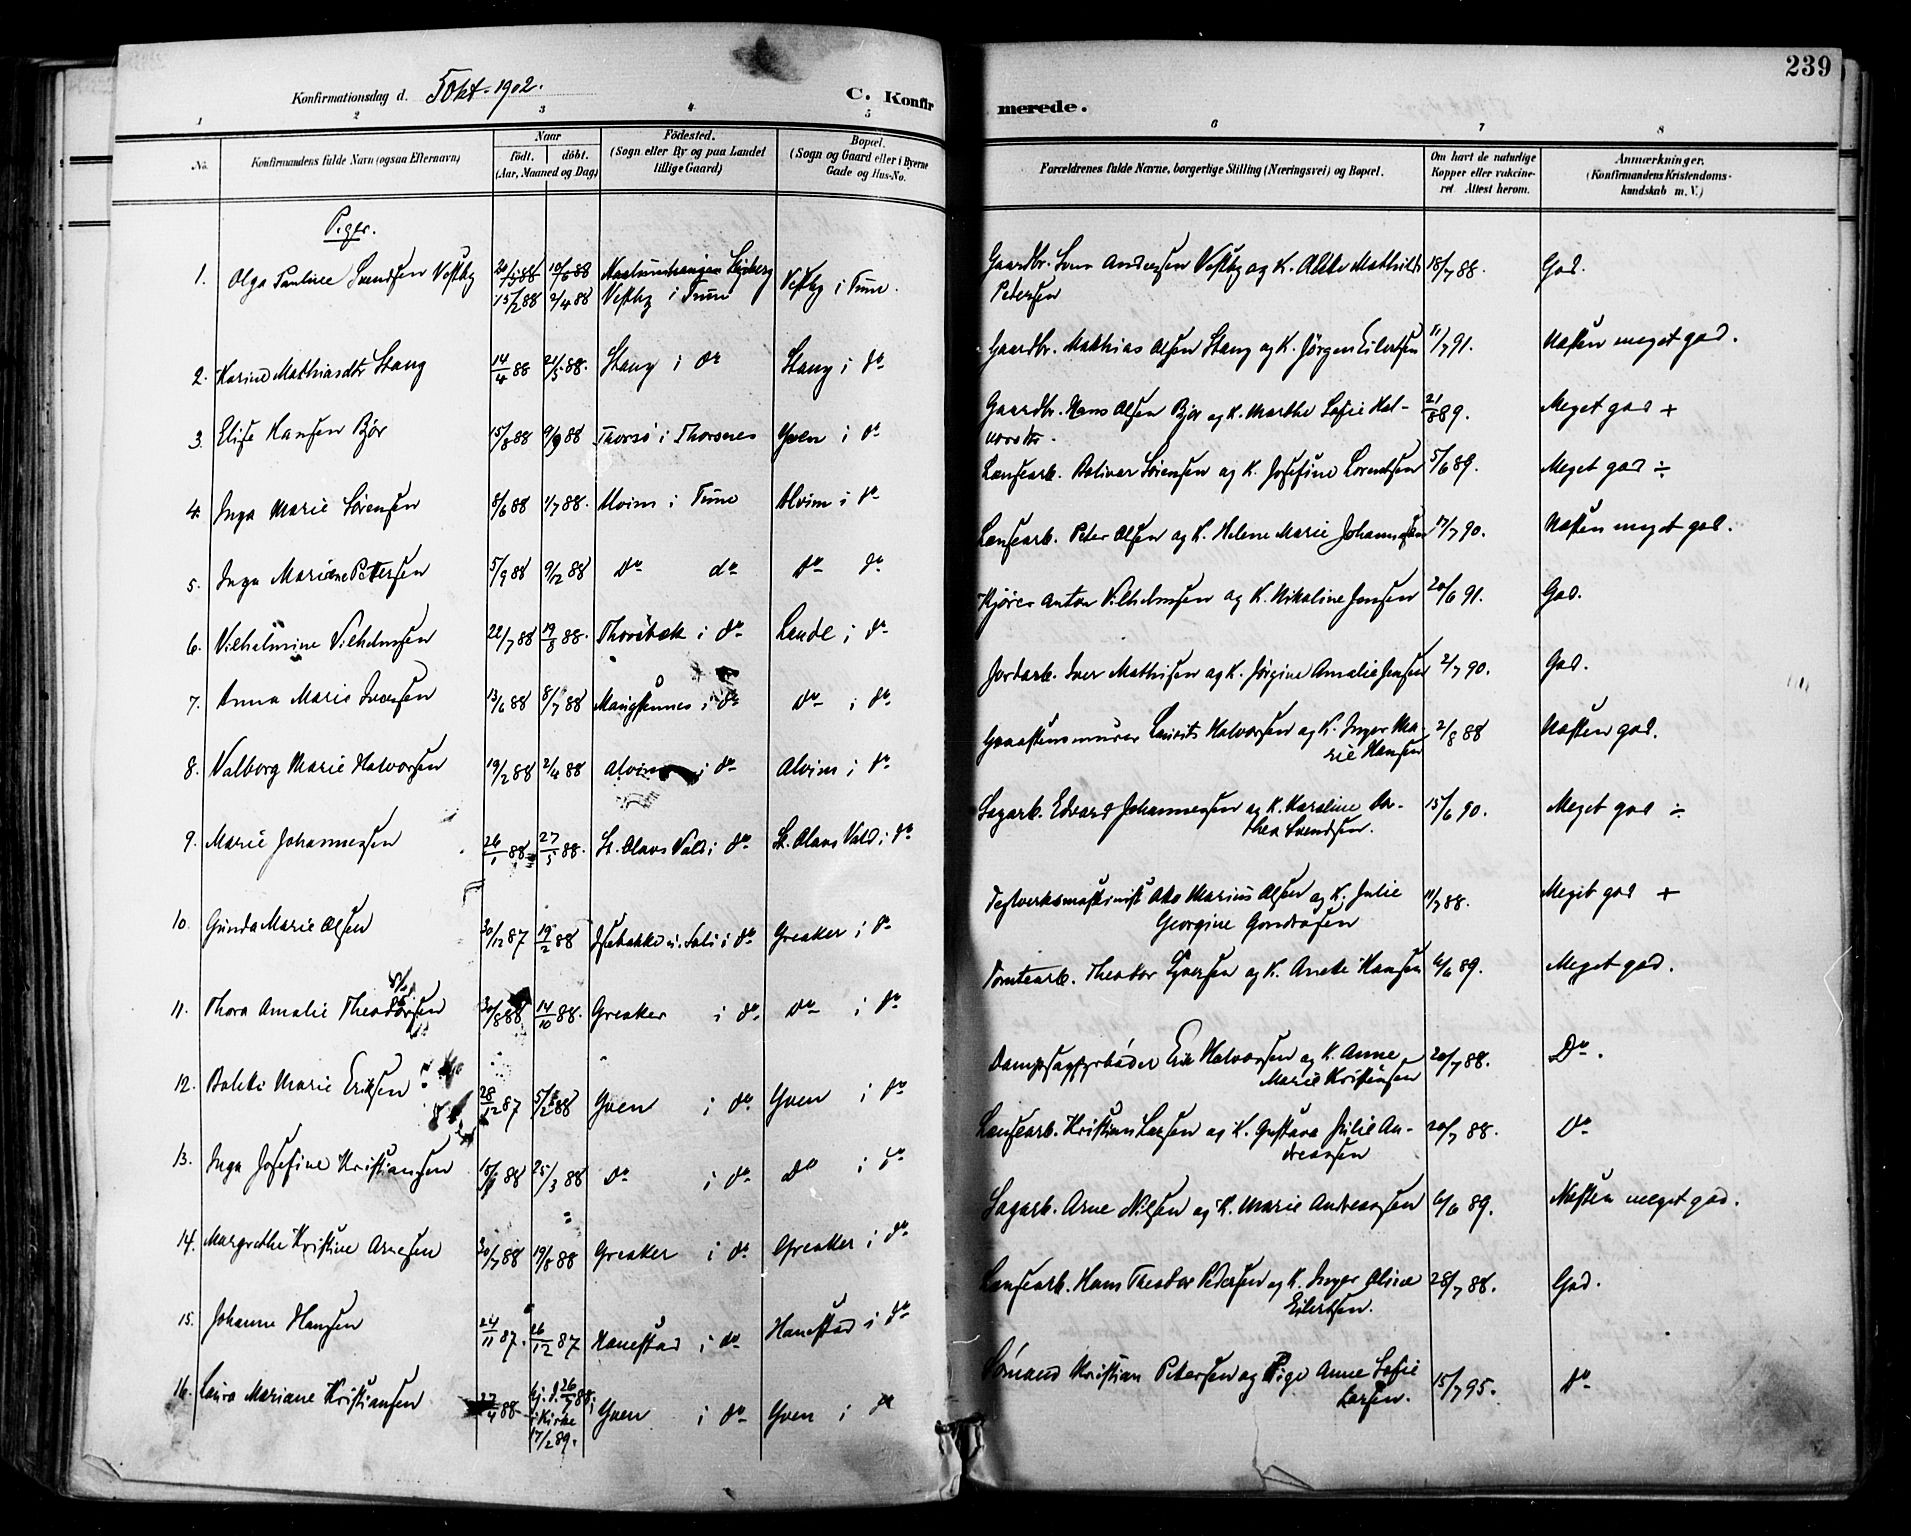 239
Konfirmationsdag d. 5 Okt. 1902.
C. Konfirmerede.
1 2 3 4 5 6 7 8
No. Konfirmandens fulde Navn (ogsaa Efternavn) Naar födt. döbt. (Aar, Maaned og Dag) Födested. (Sogn eller By og paa Landet tillige Gaard) Bopæl. (Sogn og Gaard eller i Byerne Gade og Hus-No. Forældrenes fulde Navne, borgerlige Stilling (Næringsvei) og Bopæl. Om havt de naturlige Kopper eller vakcineret Attest herom. Anmærkninger. (Konfirmandens Kristendomskundskab m. V.)
Piger.
1. Olga Pauline Svendsen Vestby 15/2 88 2/4 88 Vestby i Tune Vestby i Tune. Gaardbr. Sven Andersen Vestby og K. Mathilde Petersen 18/7 88. God.
2. Karine Mathiasdtr Stang 14/4 88 21/5 88. Stang i do Stang i do Gaardbr. Mathias Olsen Stang og K. Jörgine Eilertsen 11/7 91. Næsten meget god.
3. Elise Hansen Björ 15/8 88 9/9 88 Thorsö i Thorsnes Yven i do Gaardbr. Hans Olsen Björ og K. Marthe Sofie Halvorsdtr. 21/8 89. Meget god +
4. Inga Marie Sörensen 8/6 88 1/7 88. Alvim i Tune Alvim i do Landsearb. Bolivar Sörensen og K. Josefine Lorentsen 5/6 89. Meget god ÷
5. Inga Mariane Pettersen 5/9 88 9/12 88 Do do Do do Peter Olsen og K. Helene Marie Johannesen 17/7 90. Næsten meget god.
6. Vilhelmine Vilhelmsen 22/7 88 19/8 88. Thorsbæk i do Lande i do Kjörer Anton Vilhelmsen og K. Nikoline Jensen 20/6 91. God.
7. Anna Marie Iversen 13/6 88 8/7 88 i do Do i do Jordarb. Iver Mathisen og K. Jörgine Amalie Jensen 2/7 90. God.
8. Valborg Marie Halvorsen 19/2 88 2/4 88 Alvim i do Alvim i do Graastensmurer Laurits Halvorsen og K. Inger Marie Hansen 2/8 88 Næsten god.
9. Marie Johannessen 26/1 88 27/5 88. St. Olavs Vold i do St. Olavs Vold i do Sagarb. Edvard Johannessen og K. Karoline Dorthea Svendsen. 15/6 90. Meget god ÷
10. Gunda Marie Olsen 30/12 87 19/2 88 i do Greaker i do Teglverksmaskinist Marius Olsen og K. Julie Georgine 11/7 88. Meget god +
11. Thora Amalie Theodorsen 30/8 88 14/10 88. Greaker i do Do i do Tomtearb. Theodor Syversen og K. Anette Hansen 6/6 89. Meget god.
12. Bolette Marie Eriksen 28/12 87 5/2 88 Yven i do Yven i do Dampsagfyrböder Erik Halvorsen og K. Anne Marie Kristensen 20/7 88. Do.
13. Inga Josefine Kristiansen 88 25/3 88 Do i do Do i do Kristian Larsen og K. Gustava Julie Andreassen 20/7 88. Do
14. Margrethe Kristine Arnesen 30/7 88 19/8 88 Greaker i do Greaker i do Sagarb. Arne Nilsen og K. Marie Andreassen 6/6 89. Næsten meget god.
15. Johanne Hansen 24/11 87. 26/12 87 Hanestad i do Hanestad i do Hans Theodor Pedersen og K. Inger Oline Eilertsen. 28/7 88. God.
16. Laura Mariane Kristiansen 27/4 88 hj. d. 26/7 88, i Kirke 17/2 89. Yven i do Yven i do Sömand Kristian Petersen og Pige Anne Sofie Larsen. 15/7 95. Do